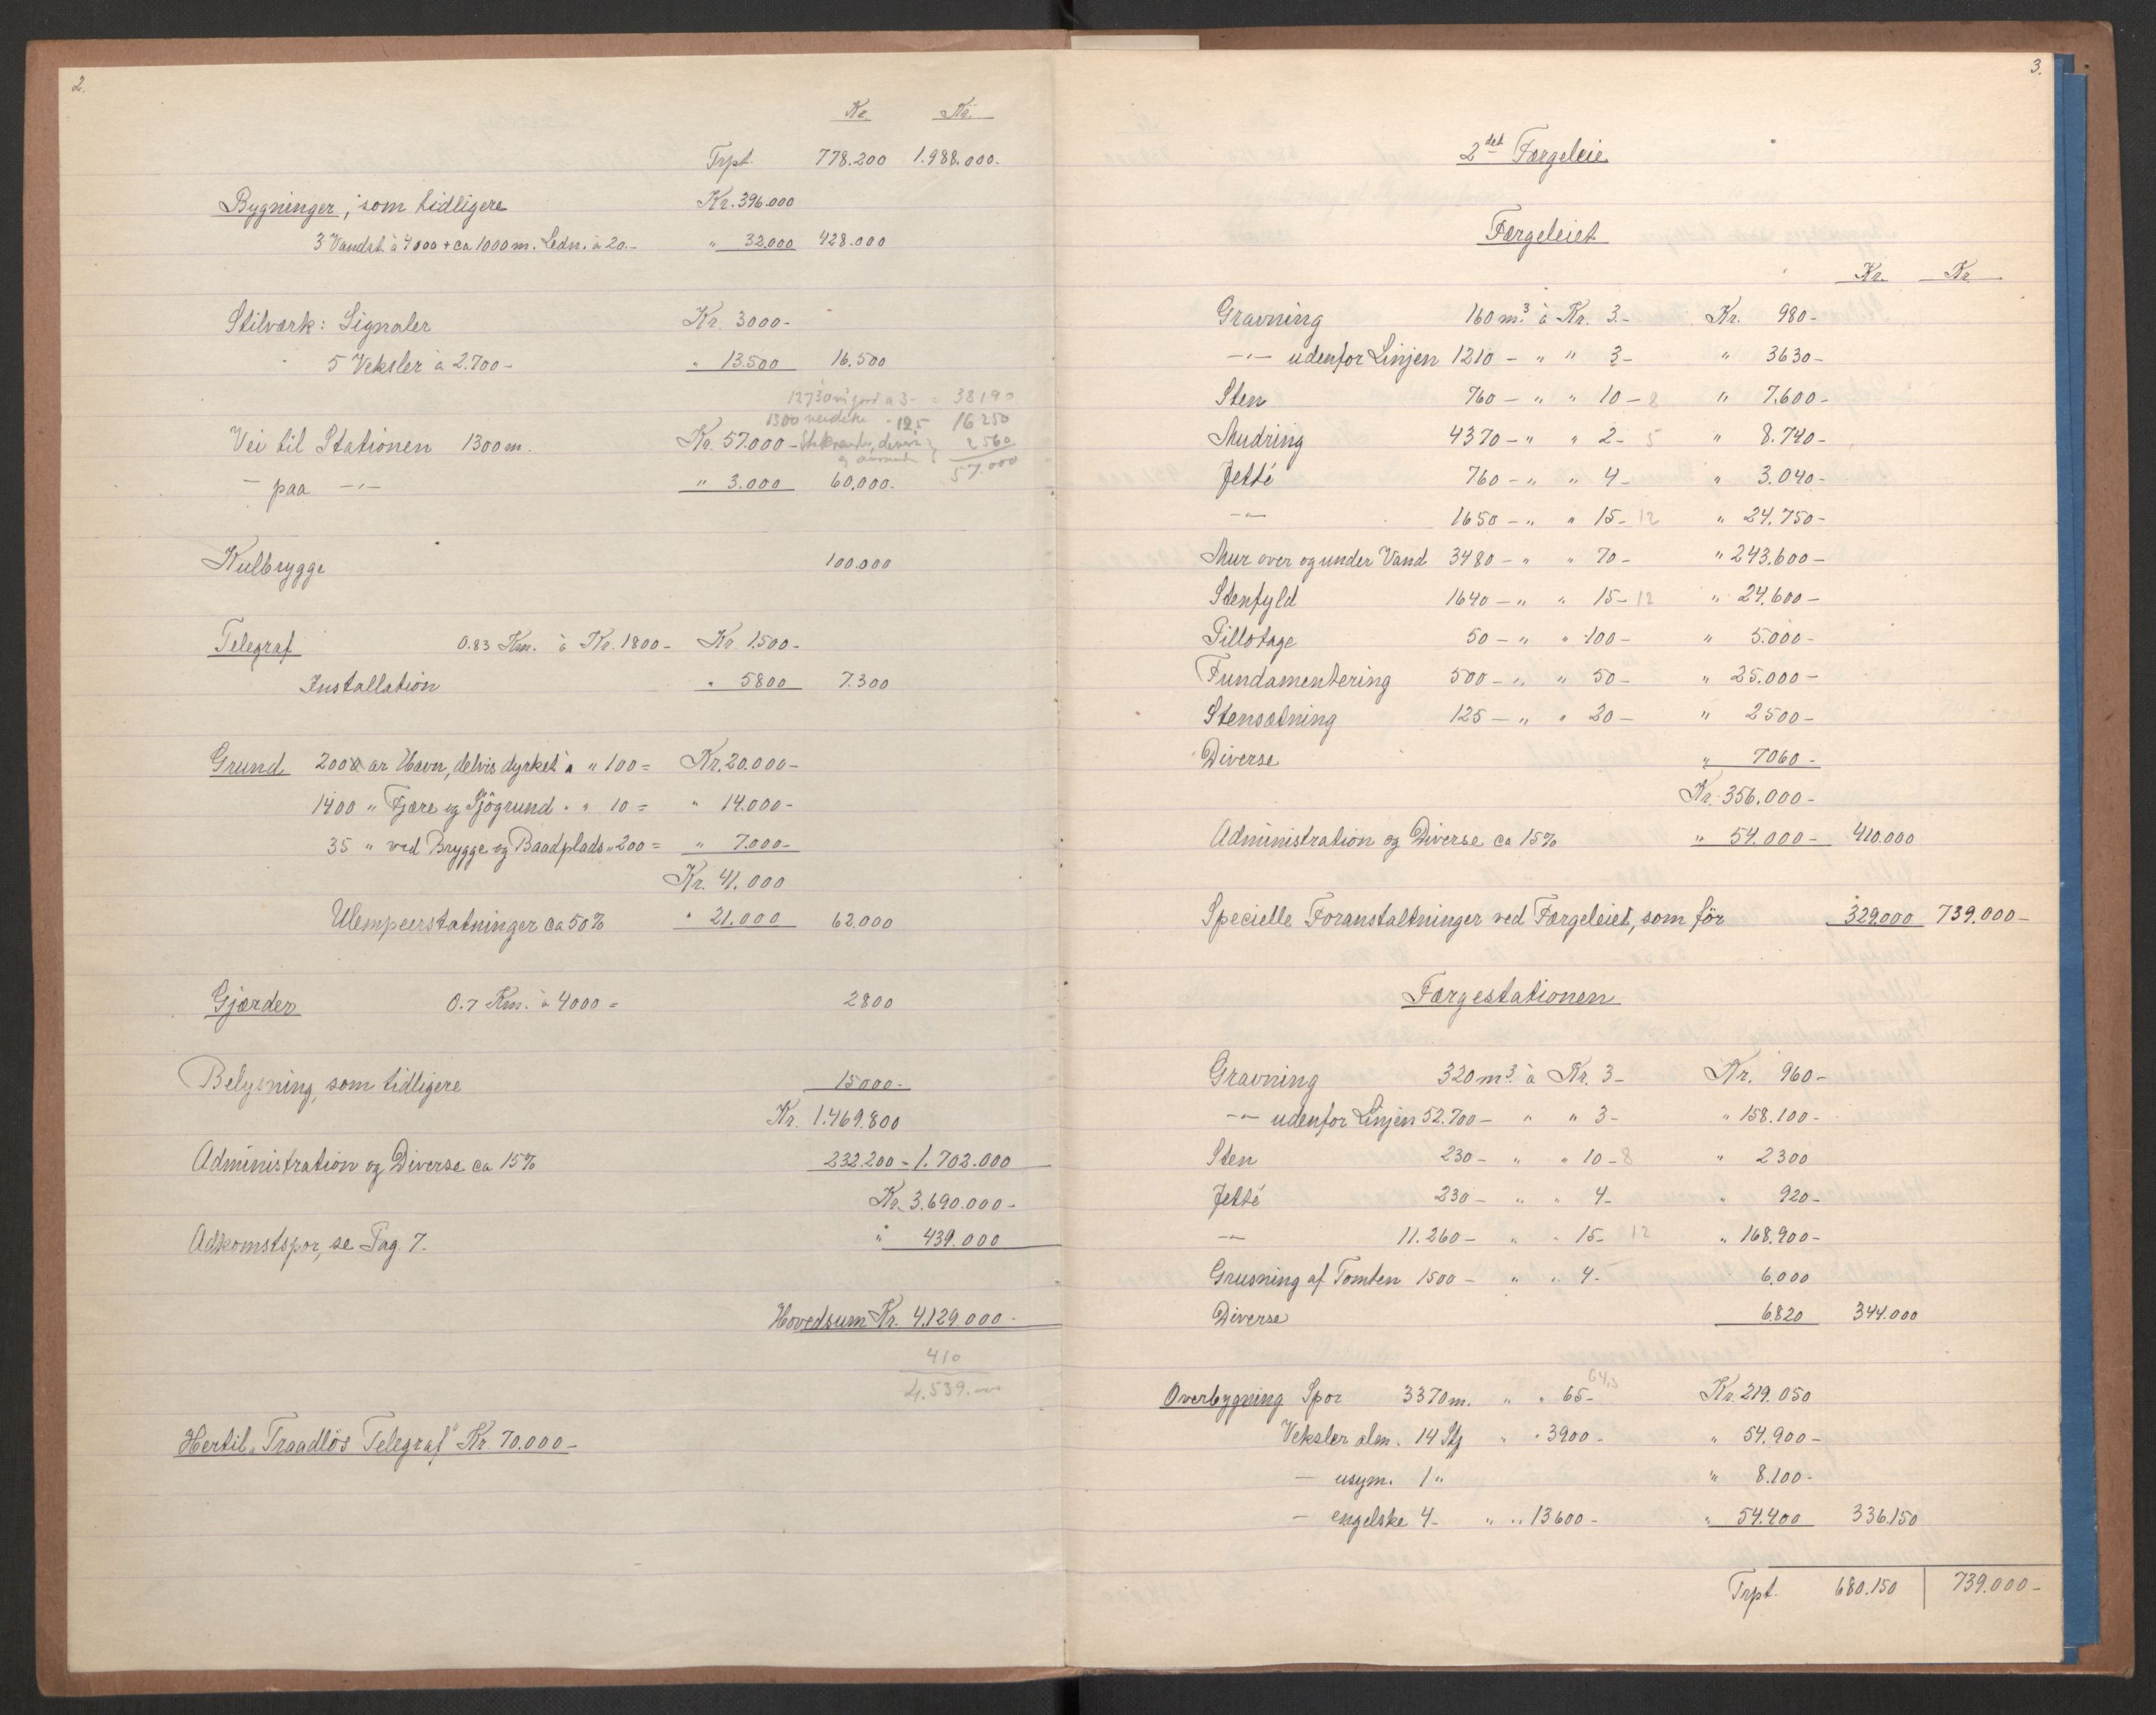 2.
Kr. Kr.
Trpt. 778.200 1.988.000.-
Bygninger, som tidligere Kr. 396.000
3 Vandst. à 4000 + ca 1000 m. Ledn. à 20.- " 32.000 428.000
Stilværk: Signaler Kr. 3000-
5 Veksler à 2.700- " 13.500 16.500
12730 m³ jord a 3- = 38190
1300 - 12.5 16250
Vei til Stationen 1300 m. Kr. 57.000- 2560
57.000
- paa -"- " 3.000 60.000.-
Kulbrygge 100.000
Telegraf 0.83 Km. à Kr. 1800- Kr. 1.500-
Installation " 5800 7.300
Grund 200 ar Havn, delvis dyrket à " 100 = Kr. 20.000-
1400 " Fjære og Sjögrund " " 10 = " 14.000-
35 " ved Brygge og Baadplads " 200 = " 7.000-
Kr. 41.000
Ulempeerstatninger ca 50% " 21.000 62.000
Gjærder 0.7 Km. à 4000 = 2800
Belysning, som tidligere 15000-
Kr. 1.469.800
Administration og Diverse ca 15% 232.200 = 1.702.000
Kr. 3.690.000-
Adkomstspor, se Pag. 7. " 439.000
Hovedsum Kr. 4.129.000-
410
4.539.000
Hertil „Traadlös Telegraf" Kr. 70.000-
3.
2det Færgeleie
Færgeleiet
Kr. Kr.
Gravning 160 m³. à Kr. 3.- Kr. 980-
-"- udenfor Linjen 1210 - " " 3- " 3630-
Sten 760 - " " 10- 8 " 7.600-
Mudring 4370 - " " 2- 5 " 8.740-
Jetté 760 - " " 4- " 3.040-
-"- 1650 - " " 15- 12 " 24.750-
Mur over og under Vand 3480 - " " 70- " 243.600-
Stenfyld 1640 - " " 15- 12 " 24.600-
Pillotage 50 - " " 100- " 5.000-
Fundamentering 500 - " " 50- " 25.000-
Stensætning 125 - " " 20- " 2500-
Diverse " 7060-
Kr. 356.000-
Administration og Diverse ca 15% " 54.000- 410.000
Specielle Foranstaltninger ved Færgeleiet, som för 329.000 739.000-
Færgestationen
Gravning 320 m³. à Kr. 3- Kr. 960-
-"- udenfor Linjen 52.700 - " " 3- " 158.100-
Sten 230 - " " 10- 8 " 2300
Jetté 230 - " " 4- " 920-
-"- 11.260 - " " 15- 12 " 168.900-
Grusning af Tomten 1500 - " " 4- 6.000
Diverse 6.820 344.000
64.5
Overbygning Spor 3370 m. " " 65- Kr. 219.050
Veksler alm. 14 Stg " " 3900- " 54.900-
- usym. 1 " " 8.100-
- engelske 4 - " " 13600- " 54.400 336.150
Trpt. 680.150 739.000-